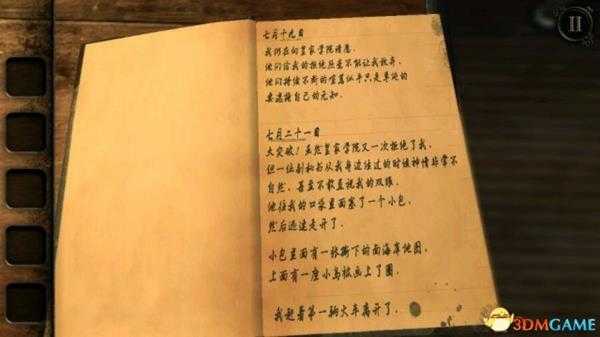 七月十九日
我仍在向皇家学院请愿。
他们给我的拒绝丝毫不能让我放弃,
他们持续不断的
要遮掩自己的无知。
七月二十一日
大突破!虽然皇家学院又一次拒绝了我,
但一位副秘书从我身边经过的时候神情非常不
自然,甚至不敢直视我的双眼。
他往我的口袋里面塞了一个小包,
然后迅速走开了。
小包里面有一张撕下的南海岸地图,
上面有一座小岛被画上了圈。
我赶着第一辆火车离开了。
II
3DMGAME